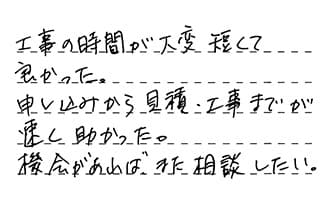 工事の時間が大変短くて
良かった。
申し込みから見積・工事までが
速く助かった。
機会があればまた相談したい。